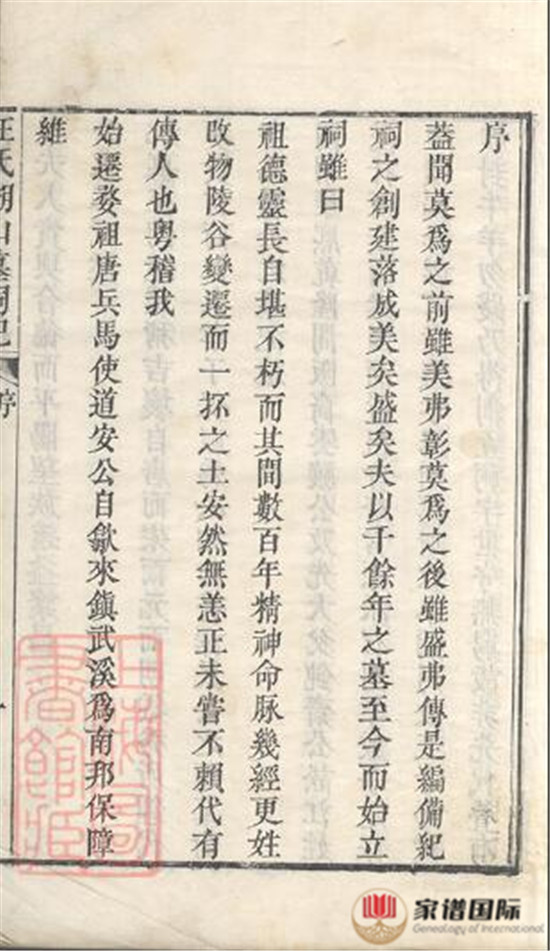 序
蓋聞莫爲之前雖美弗彰莫爲之後雖盛弗傳是編備紀
祠之創建落成美矣盛矣夫以千餘年之墓至今而始立
祠雖曰
祖德靈長自堪不朽而其間數百年精神命脉幾經更姓
改物陵谷變遷而一抔之土安然無恙正未嘗不賴代有
傳人也粵稽我
始遷婺祖唐兵馬使道安公自歙來鎮武溪爲南邦保障
維
汪氏湖山墓祠紀 序 一
家谱国际
Genealogy of International